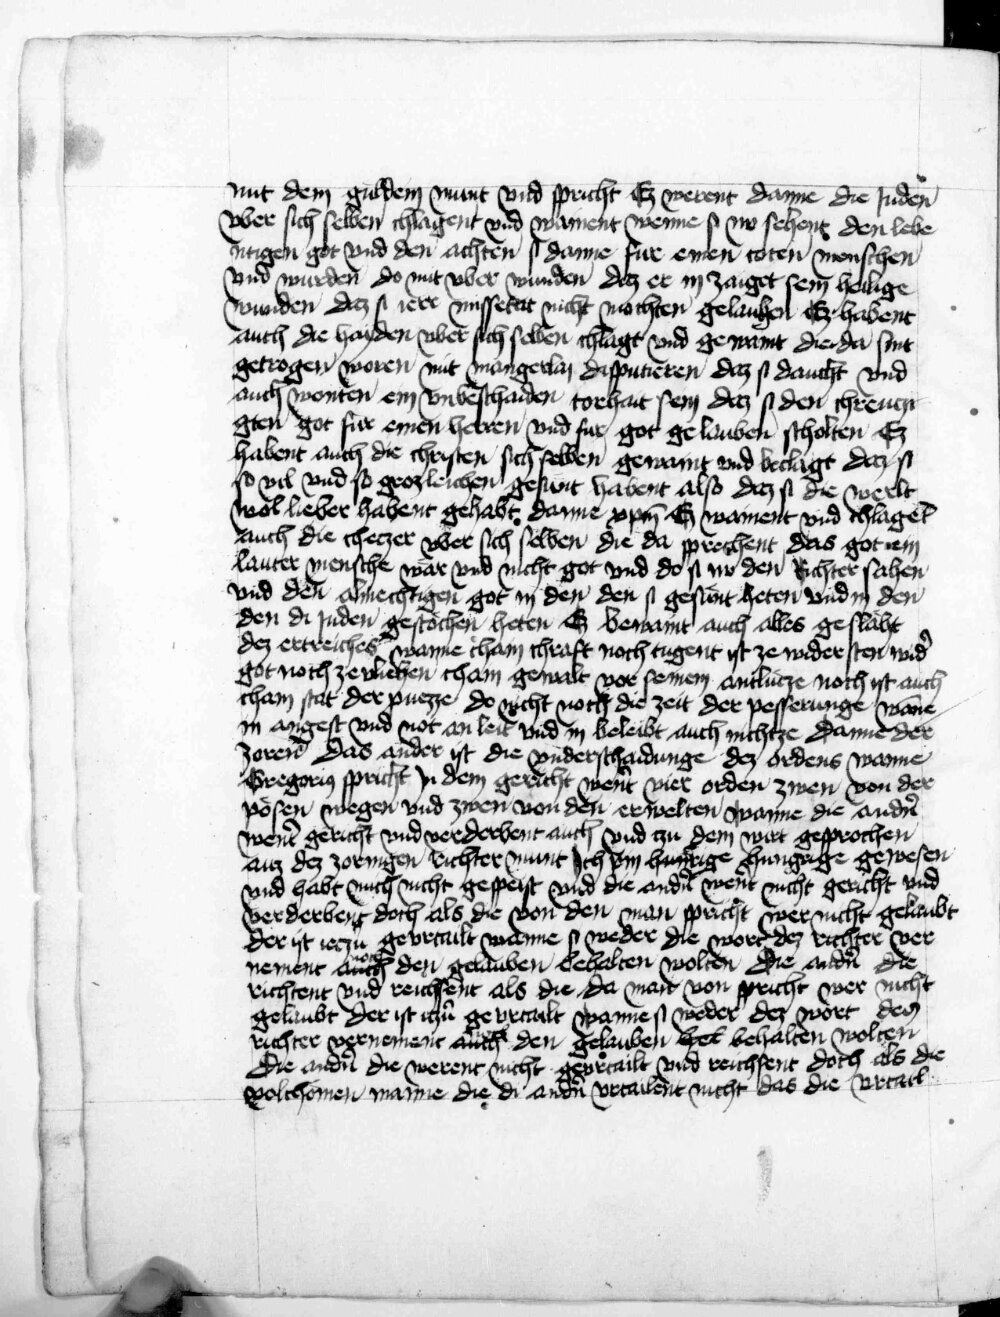 mit dem guldem munt vnd spricht Ez werent danne die Juden
vber sich selben chlagent vnd wainent wenne si nv sehent den lebe
ntigen got vnd den achten si danne fur einen toten menschen
vnd wurden do mit vber wunden daz er in zaiget sein heilige
wunden daz si ierr missetat nicht mochten gelauben Ez habent
auch die hayden vber sich selben chlagt vnd gewaint die da sint
getrogen woren mit mangerlai disputieren daz si daucht vnd
auch wonten ein vnbeschaiden torhait sein daz si den chreuczi
gten got fur einen herren vnd fur got gelauben scholten Ez
habent auch die christen sich selben gewaint vnd beclagt daz si
so vil vnd so grozleichen gesunt habent also daz si die werlt
wol lieber habent gehabt danne xpm Ez wainent vnd chlagent
auch die checzer vber sich selben die da sprechent das got ein
lauter mensche wär vnd nicht got vnd do si nv den Richter sahen
vnd den almechtigen got in den den si gesunt heten vnd in den
den di Juden gestochen heten Ez bewaint auch alles geslächt
dez ertreiches wanne cham chraft noch tugent ist ze wider sten wid'
got noch ze vliehen cham gewalt vor seinem antlucze noch ist auch
cham stat der puezze do nicht noch die zeit der pesserunge wanne
in angest vnd not an leit vnd in beleibt auch nichtze danne der
zoren Das ander ist die vnderschaidunge dez ordens wanne
Gregorius spricht In dem gericht wert vier orden zwen von der
pösen wegen vnd zwen von den erwelten wanne die andn
wert gericht vnd verderbent auch vnd czu dem wirt gesprochen
auz dez zornigen richter munt Ich pin hungrige gewesen
vnd habt mich nicht gespeist vnd die andn wert nicht gericht vnd
verderbent doch als die von den man spricht wer nicht gelaubt
der ist ieczu gevrtailt wanne si weder die wort dez richter ver
nement noch den gelauben behalten wolten Die andn die
richtent vnd reichsent als die da man von spricht wer nicht
gelaubt der ist iczu gevrtailt wanne si weder dez wort dez
richter vernement noch den gelauben behalten wolten
Die andn die werent nicht gevrtailt vnd reichsent doch als die
volchomen wanne die di andn vrtailent nicht das die vrtail